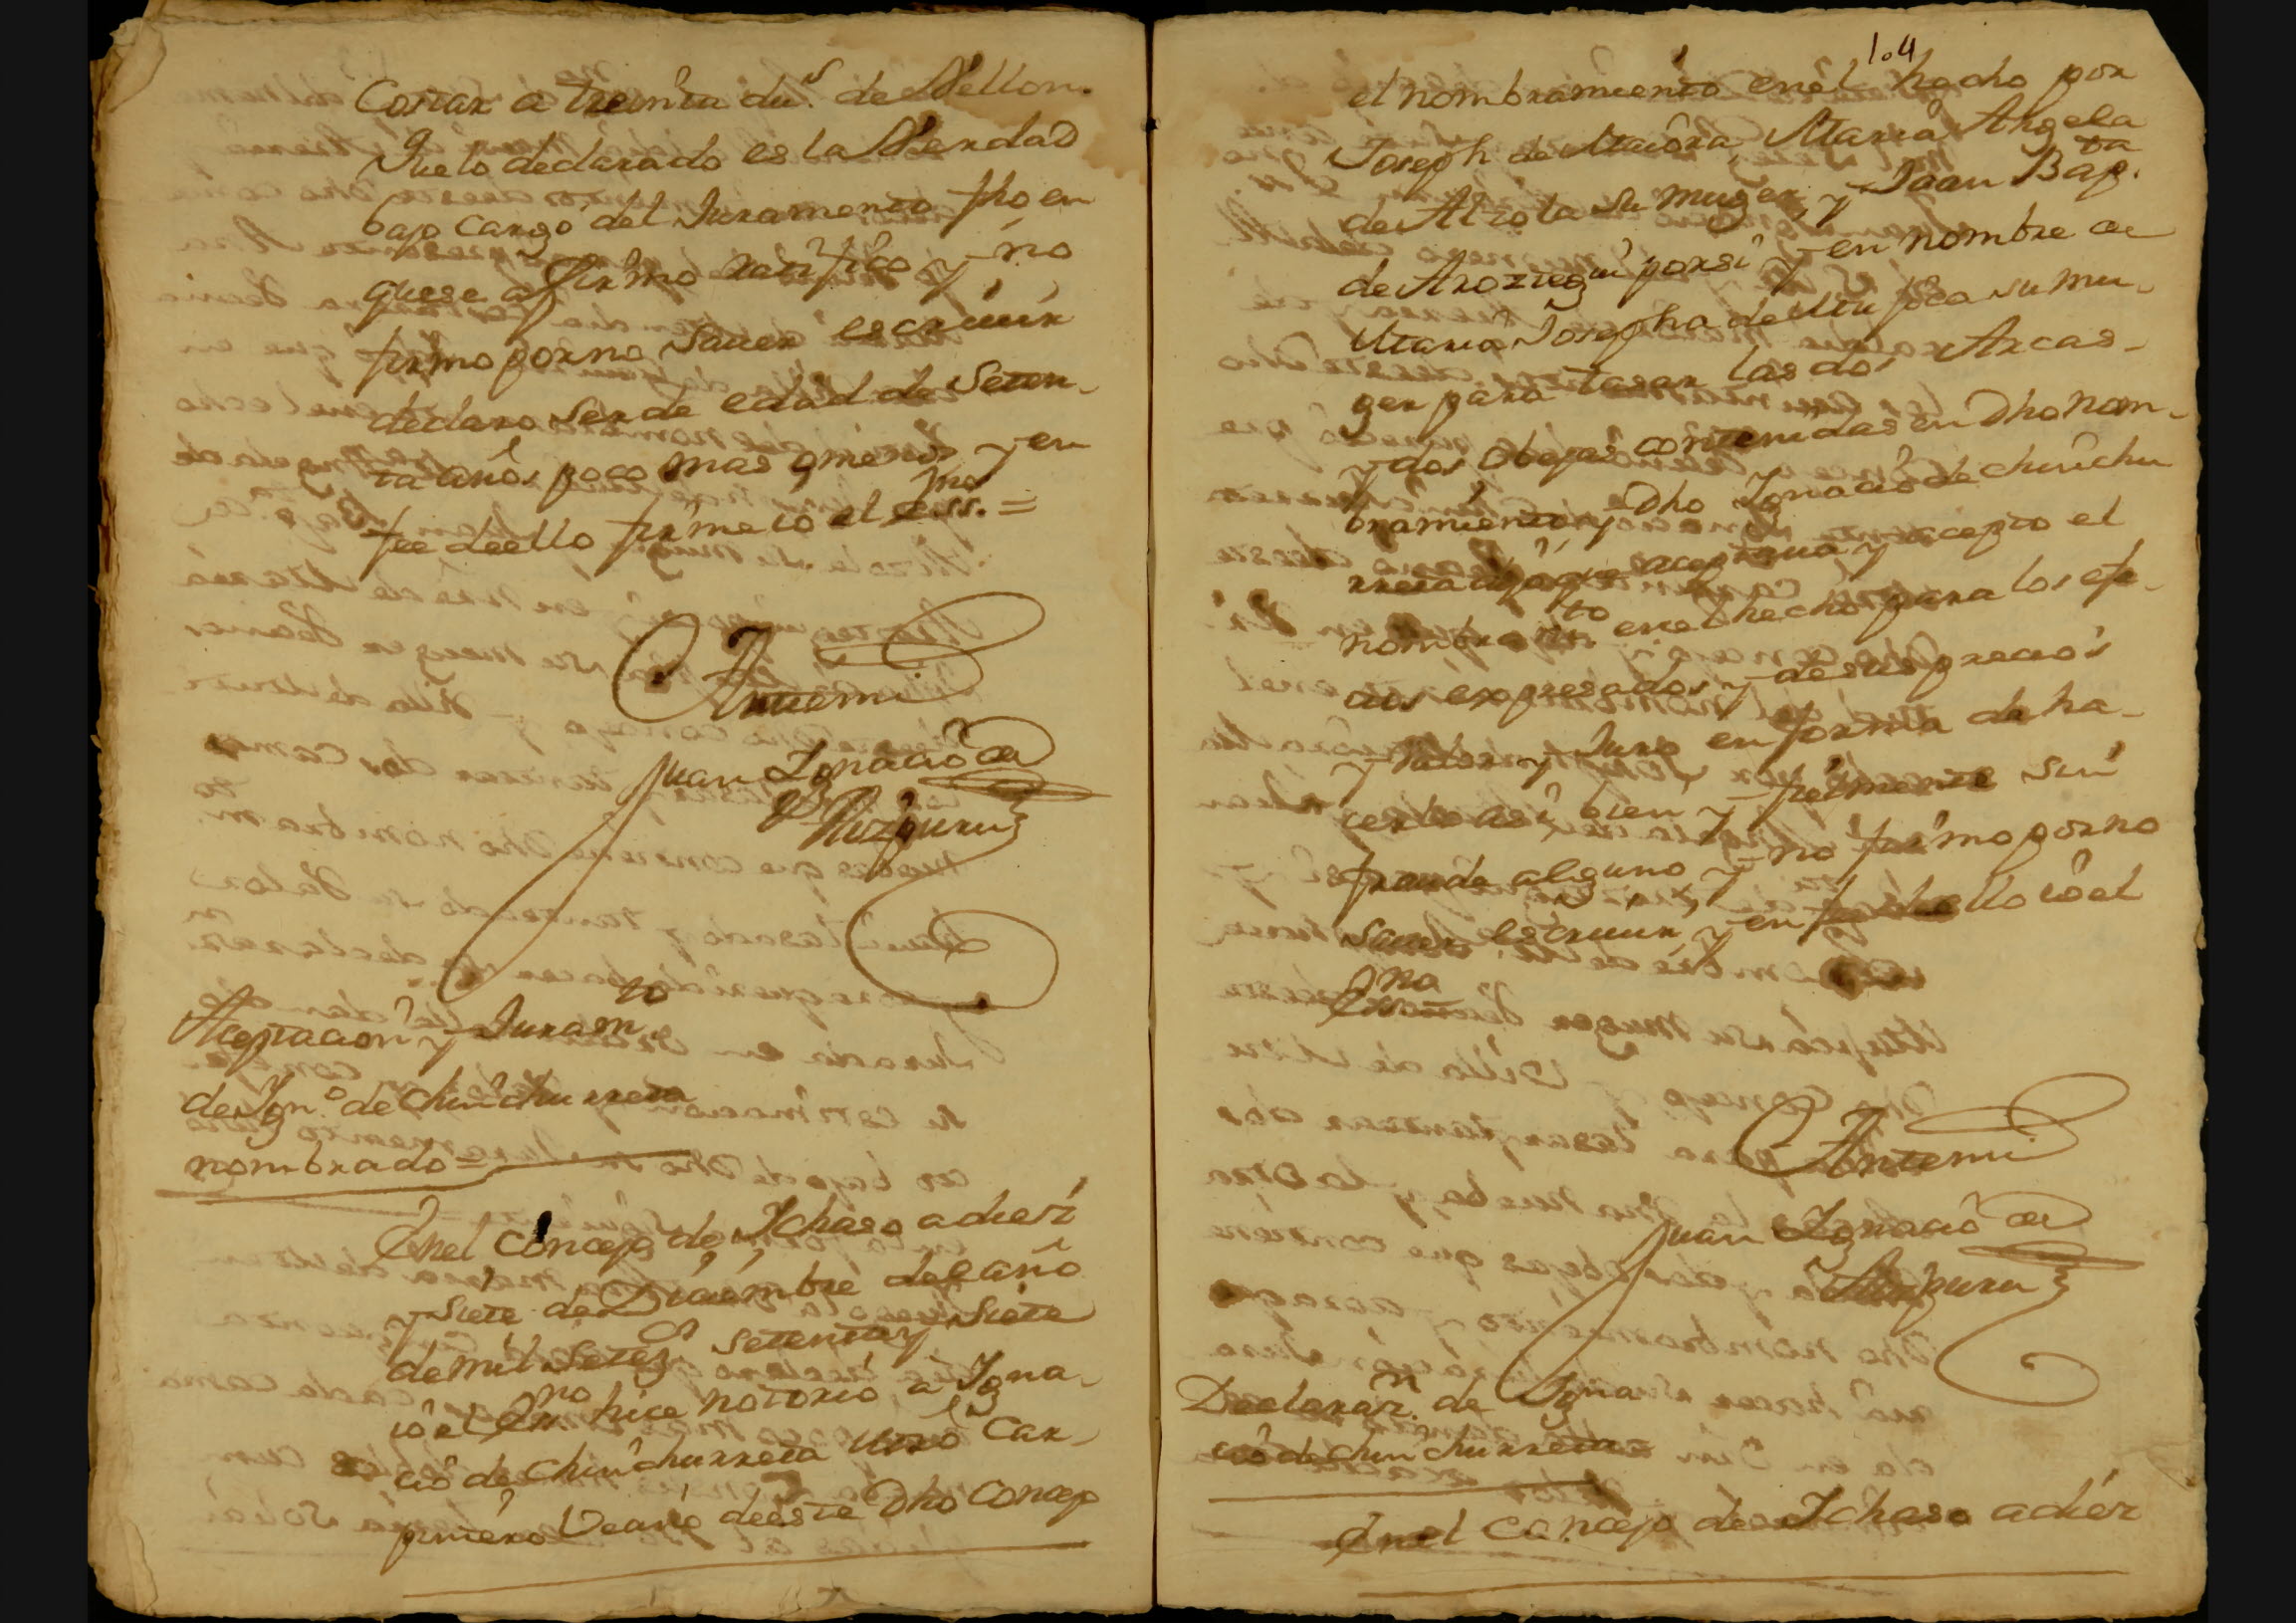 Costar à treinta du.s de Vellon.
Que lo declarado es la Verdad
bajo cargo del Juramento fho en
que se afirmo ratifico y no
firmo por no saver escriuir
declaro ser de edad de Seten-
ta años poco mas o menos y en
fee de ello firme io el ess.no =
Antemi
Juan Ignacio de
Aizpuru
Aceptacion y Juram.to
de Ign.o de Chinchurreta
nombrado =
En el Concejo de Ichaso a diez
y siete de Diciembre del año
de mil setez.s setenta y siete
io el Ess.no hice notorio a Igna-
cio de Chinchurreta Mro Car-
pintero Vecino de este Dho Concejo
104
el nombramiento en el hecho por
Joseph de Maiora, Maria Angela
de Alzola su muger, y Juan Bap.ta
de Aroztegui por si y en nombre de
Maria Josepha de Mujica su mu-
ger para tasar las dos Arcas
y dos Obejas contenidas en Dho nom-
bramiento y Dho Ignacio de Chinchu
rreta dijo que aceptaua y acepto el
nombram.to en el hecho para los efe-
ctos expresados y de sus precios
y valor y Juro en forma de ha-
cerlo asi bien y fielmente sin
fraude alguno y no firmo por no
saver escriuir y en fee de ello io el
Ess.no
Antemi
Juan Ignacio de
Aizpuru
Declaraz.n de Igna
cio de Chinchurreta
En el Concejo de Ichaso a diez